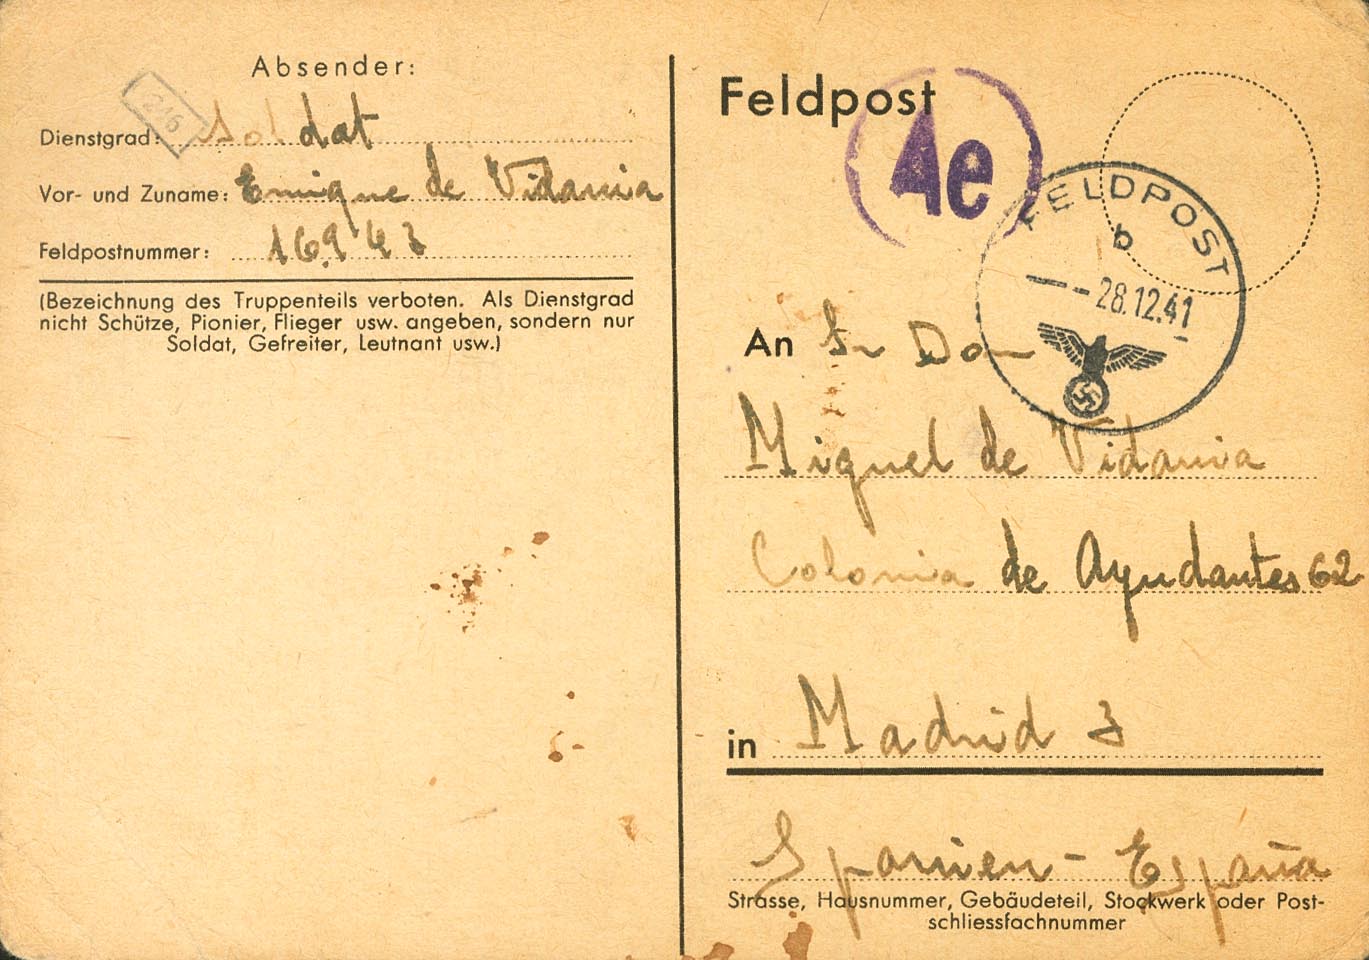 Absender:
216
Dienstgrad: Soldat
Vor- und Zuname: Enrique de Vidania
Feldpostnummer: 16943
(Bezeichnung des Truppenteils verboten. Als Dienstgrad
nicht Schütze, Pionier, Flieger usw. angeben, sondern nur
Soldat, Gefreiter, Leutnant usw.)
Feldpost
Ae
FELDPOST
b
28.12.41
An Sr Don
Miguel de Vidania
Colonia de Ayudantes 62
in Madrid 3
Spanien - España
Strasse, Hausnummer, Gebäudeteil, Stockwerk oder Post-
schliessfachnummer